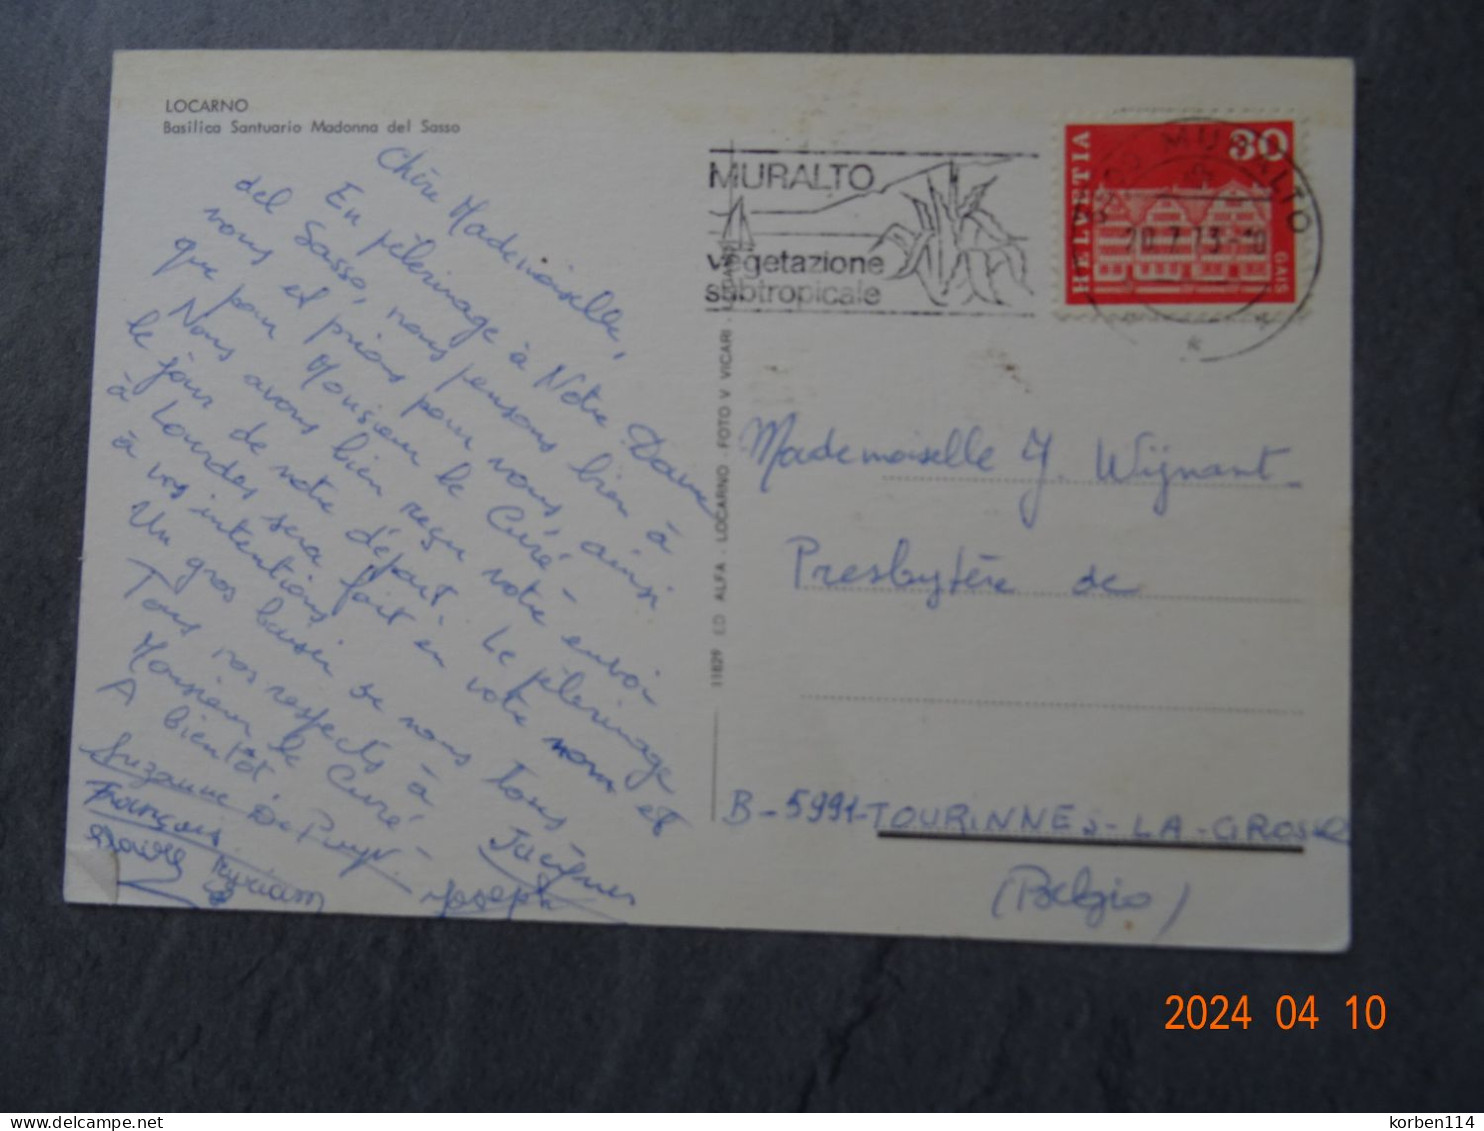 LOCARNO
Basilica Santuario Madonna del Sasso
Chère Mademoiselle,
En pèlerinage à Notre Dame
del Sasso, nous pensons bien à
vous et prions pour vous, ainsi
que pour Monsieur le Curé-
Nous avons bien reçu votre envoi
le jour de notre départ. Le pèlerinage
à Lourdes sera fait en votre nom et
à vos intentions
Un gros baiser de nous Tous
Tous nos respects à
Monsieur le Curé-
A bientôt.
Suzanne
François
Jacques
Myriam
Joseph
MURALTO
vegetazione
subtropicale
HELVETIA
30
GAIS
MURALTO
20.7.73-10
11829 ED ALFA - LOCARNO FOTO V VICARI
Mademoiselle J. Wijnant-
Presbytère de
B-5991-TOURINNES-LA-GROSSE
(Belgio)
2024 04 10
delcampe.net
korben114